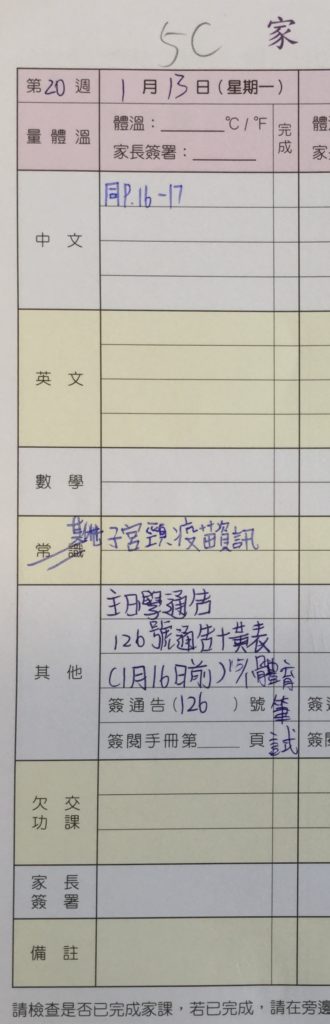 5C 家
第20週 1月13日(星期一)
量體溫 體溫:______℃/℉ 完成
家長簽署:______
中文 同P.16-17
英文
數學
常識 其他 子宮頸疫苗資訊
其他 主日學通告
126號通告+黃表
(1月16日前) 15/1體育筆試
簽通告(126)號
簽閱手冊第___頁
欠交功課
家長簽署
備註
請檢查是否已完成家課,若已完成,請在旁邊